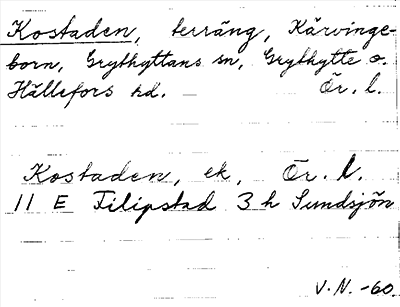 Kostaden, terräng, Kärvinge-
born, Grythyttans sn, Grythytte o.
Hällefors hd. Ör. l.
Kostaden, ek, Ör. l.
11 E Filipstad 3 h Sundsjön
V.N. -60